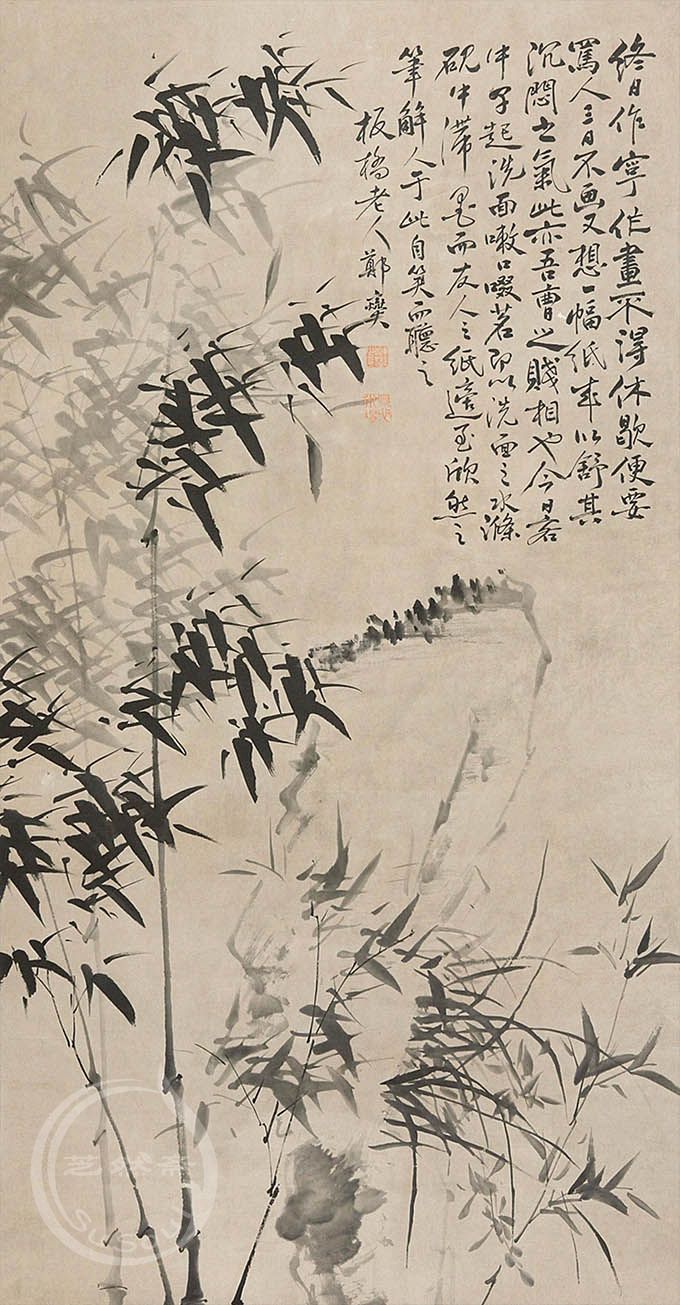 終日作字作畫不得休歇便要
罵人三日不画又想一幅紙来以舒其
沉悶之氣此亦吾曹之賤相也今日客
中早起洗面嗽口啜茗即以洗面之水滌
硯中滯墨而友人之紙適至欣然之
筆解人于此自笑而聽之
板橋老人鄭燮